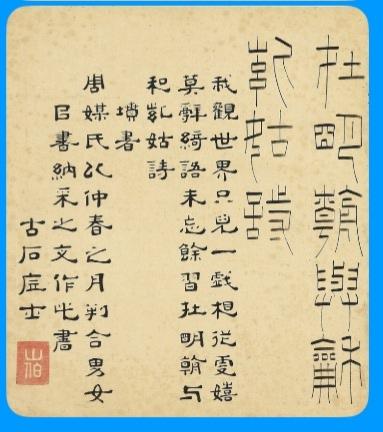 杜明翰與龢
姑詩
我觀世界只見一戲相從嬉
莫辭綺語未忘餘習杜明翰与
和姑詩
書
周媒氏以仲春之月判合男女
㠯書納采之文作此書
古石士
山伯